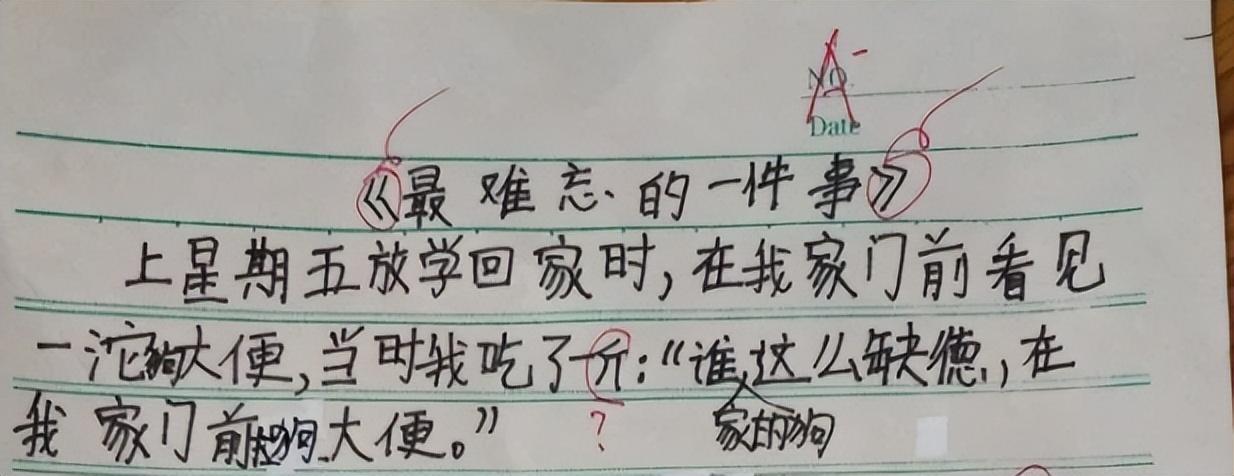 A-
NO.
Date
《最难忘的一件事》
上星期五放学回家时,在我家门前看见
一沱狗大便,当时我吃了一斤:“谁这么缺德,在
?
家的狗
我家门前拉狗大便。”